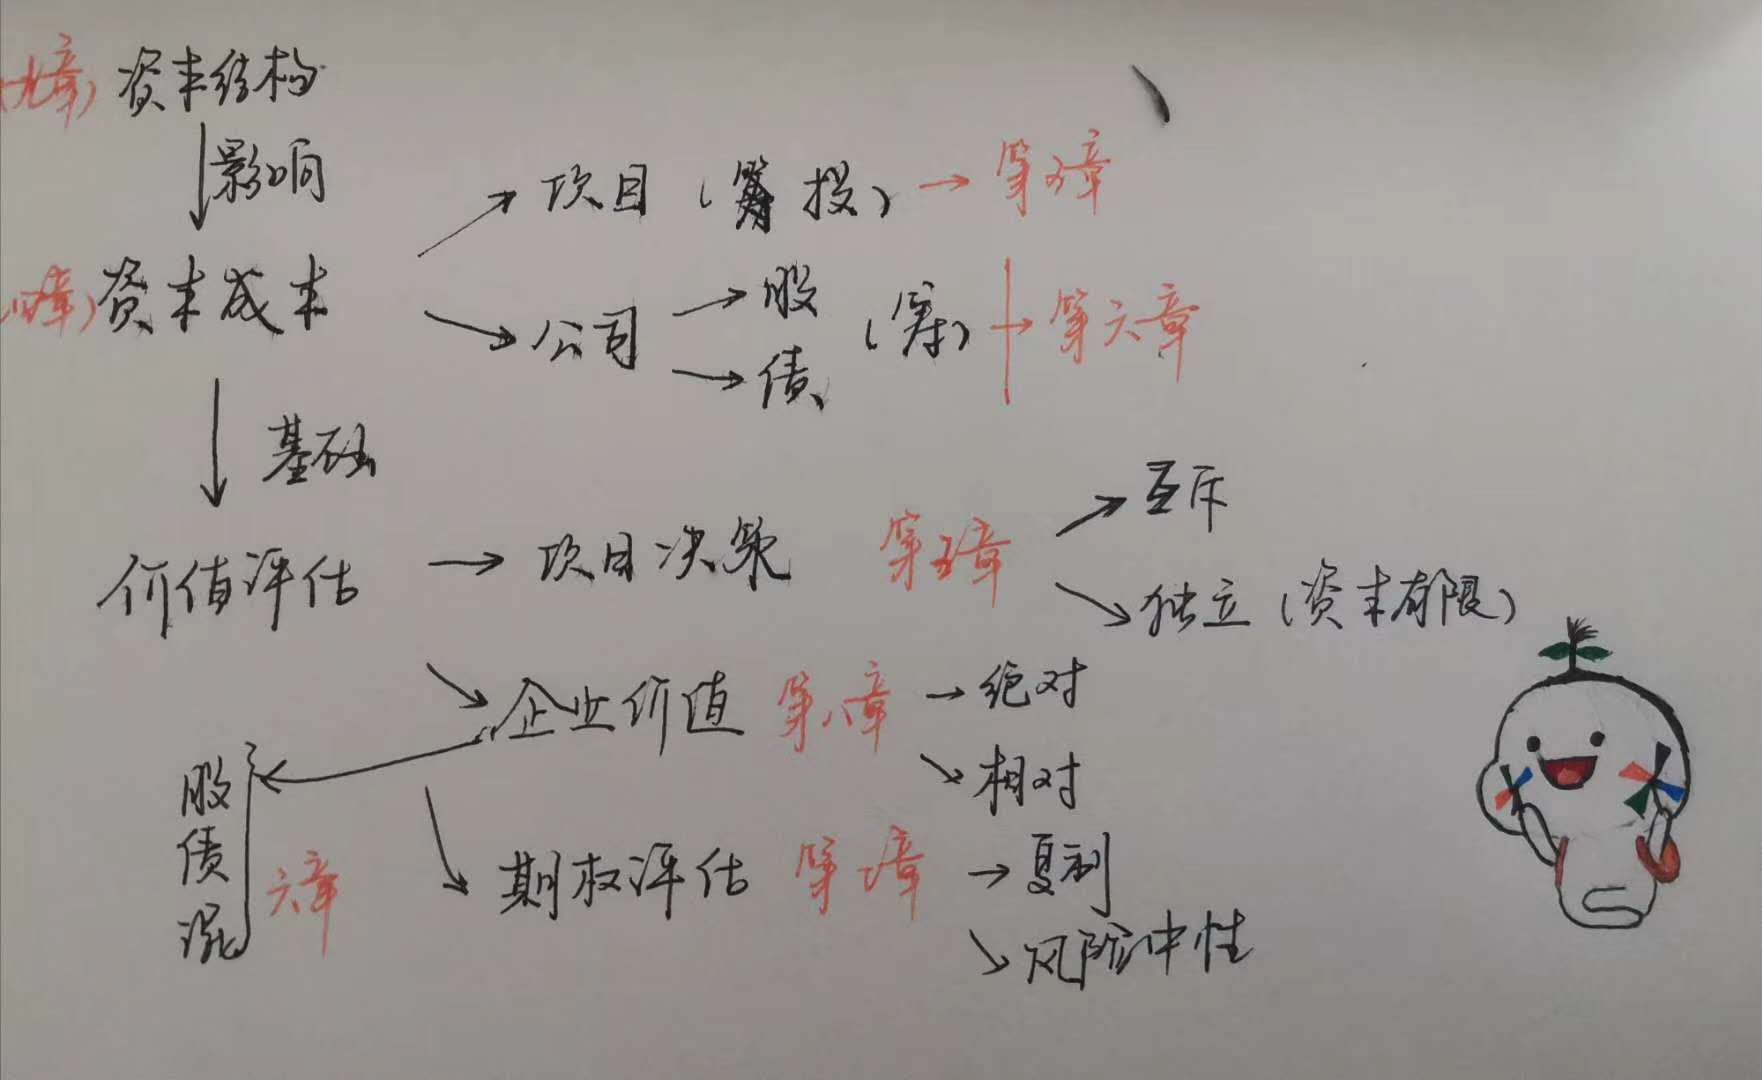 (九章) 资本结构
影响
项目 (筹 投) → 第五章
(四章) 资本成本
公司
股
债
(筹) → 第六章
基础
价值评估 → 项目决策 第五章
互斥
独立 (资本有限)
企业价值 第八章 → 绝对
相对
股
债
混
六章
期权评估 第七章 → 复利
风险中性